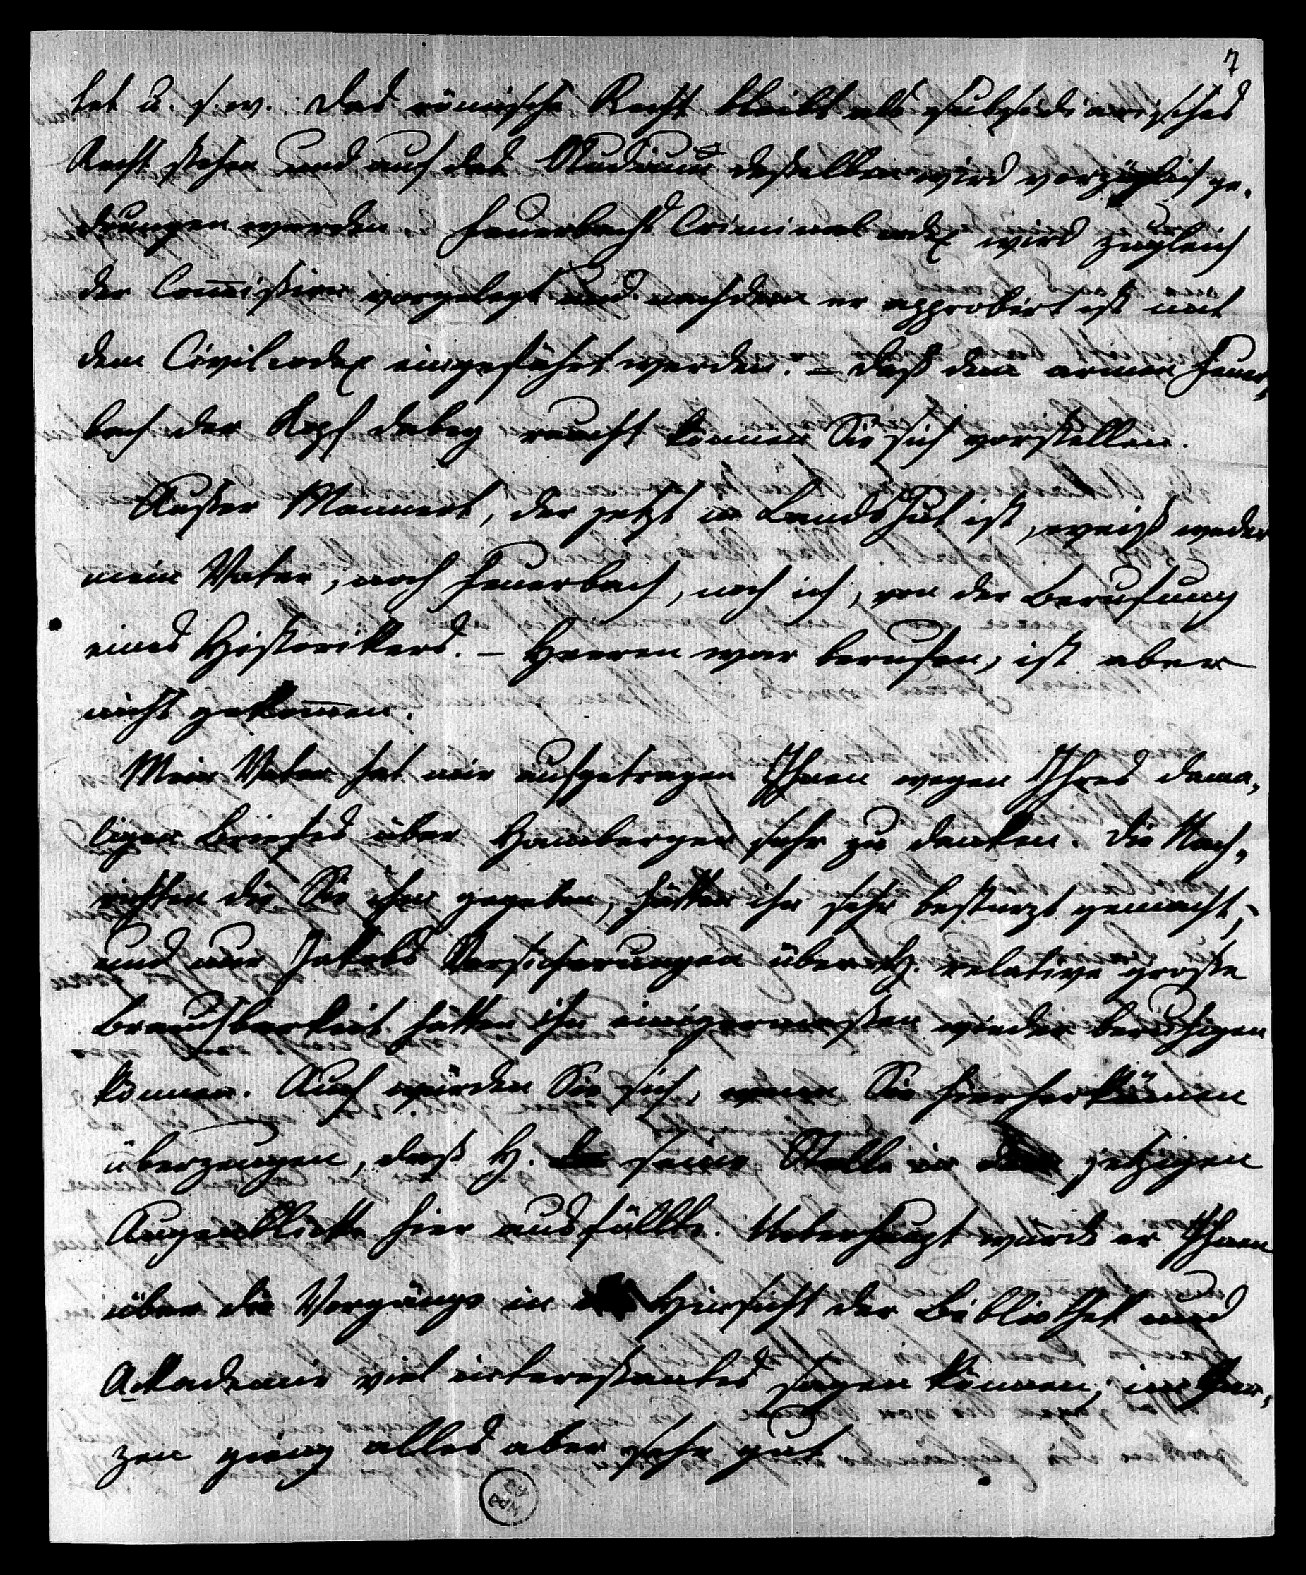 7
het u. s. w. Das römische Recht bleibt als subsidiarisches
Recht stehen und auf das Studium desselben wird vorzüglich ge-
drungen werden. Feuerbachs Criminalcodex wird zugleich
der Com̅ission vorgelegt und nachdem er approbirt ist mit
dem Civilcodex eingeführt werden. – Daß dem armen Feuer-
bach der Kopf dabey raucht können Sie sich vorstellen.
Außer Mannert, der jetzt in Landshut ist, weiß weder
mein Vater, noch Feuerbach, noch ich, von der Berufung
eines Historikers. – Heeren war berufen, ist aber
nicht gekom̅en.
Mein Vater hat mir aufgetragen Ihnen wegen Ihres dama-
ligen Briefes über Hamberger sehr zu danken. Die Nach-
richten die Sie ihm gegeben, hätten ihn sehr bestürzt gemacht,
und nur Jakobs Versicherungen über H. relative große
Brauchbarkeit hätten ihn einigermaßen wieder beruhigen
können. Auch würden Sie sich, wenn Sie hierherkämen
überzeugen, daß H. seine Stelle in dem jetzigen
Augenblicke hier ausfüllte. Ueberhaupt würde er Ihnen
über die Vorgänge in Hinsicht der Bibliothek und
Akademie viel interessantes sagen können, im Gan-
zen ging alles aber sehr gut